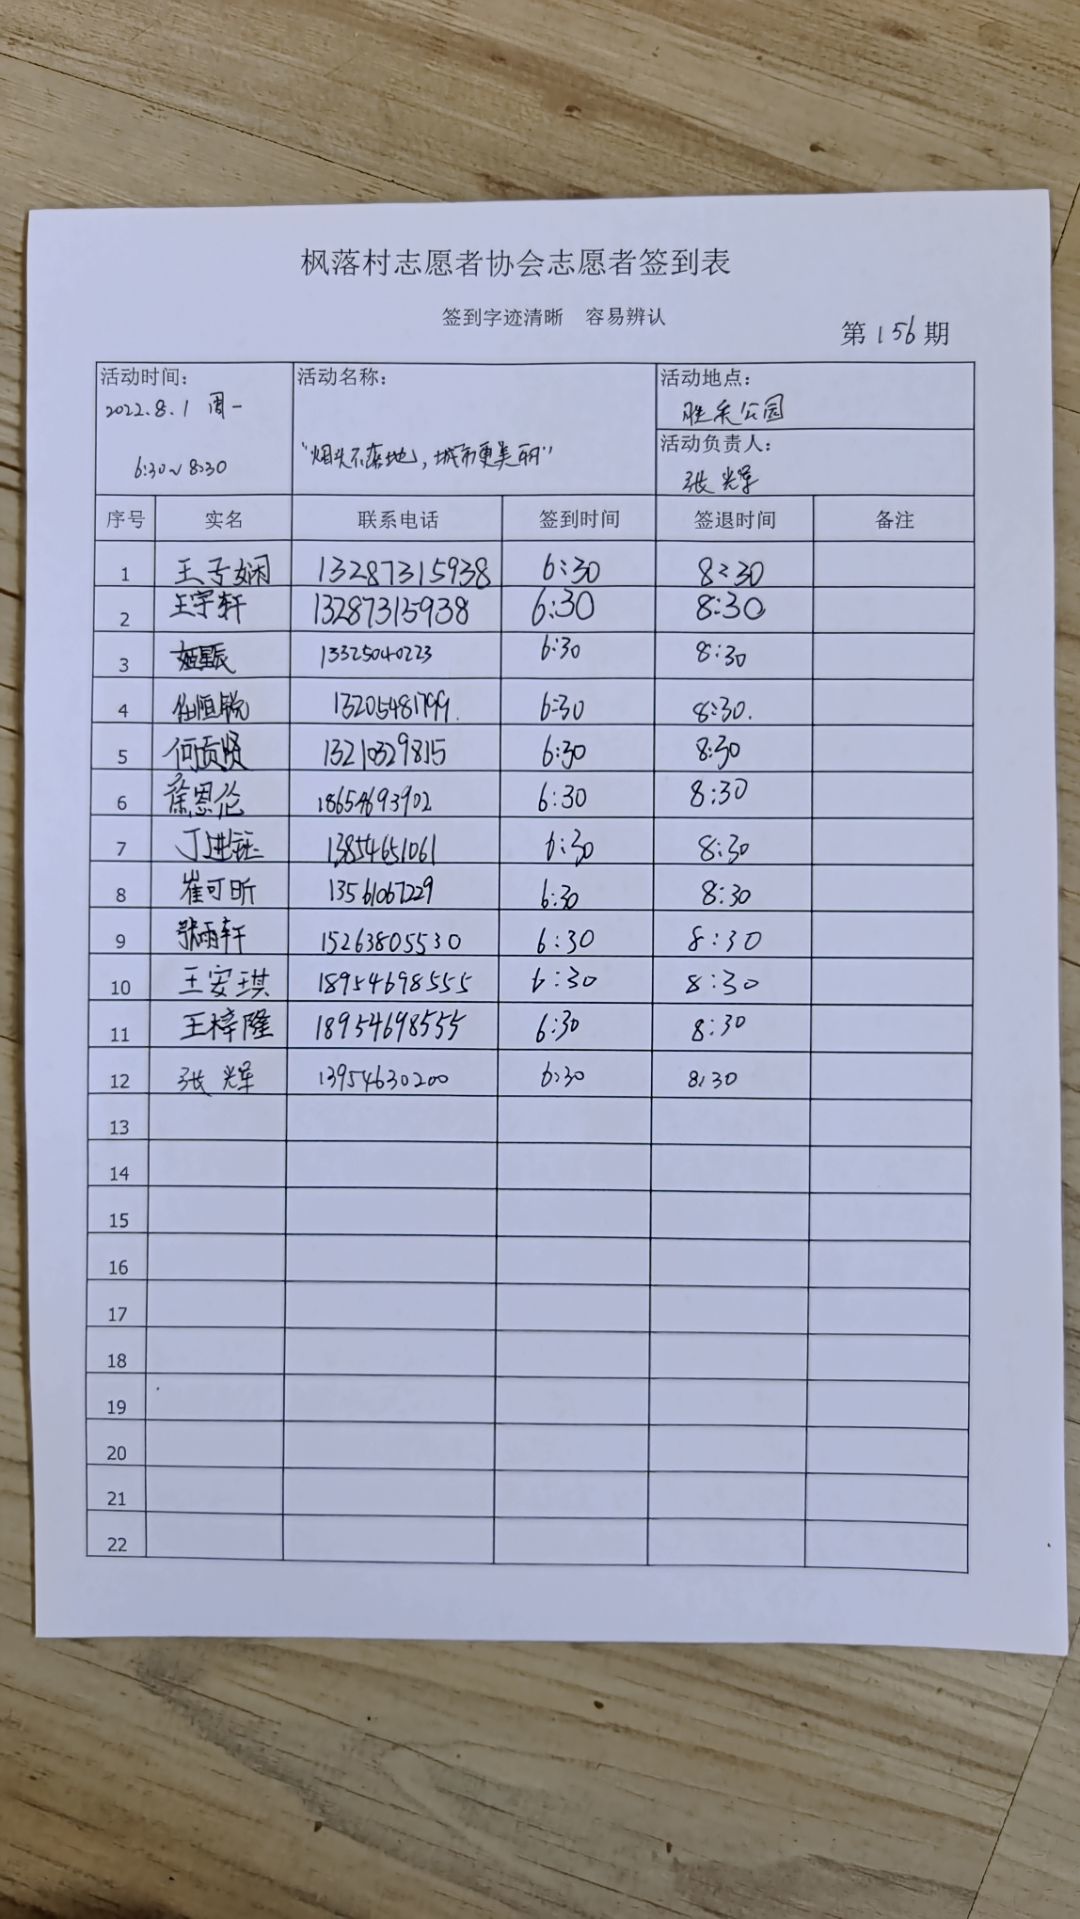 枫落村志愿者协会志愿者签到表
签到字迹清晰 容易辨认
第156期
活动时间: 活动名称: 活动地点:
2022.8.1 周一 胜采公园
活动负责人:
6:30~8:30 "烟头不落地，城市更美丽" 张光军
序号 实名 联系电话 签到时间 签退时间 备注
1 王子娴 13287315938 6:30 8:30
2 王宇轩 13287315938 6:30 8:30
3 13325040223 6:30 8:30
4 任恒锐 13205481799. 6:30 8:30.
5 何贡贤 13210329815 6:30 8:30
6 徐恩伦 18654693902 6:30 8:30
7 丁进钰 13854651061 6:30 8:30
8 崔可昕 13561067229 6:30 8:30
9 张雨轩 15263805530 6:30 8:30
10 王安琪 18954698555 6:30 8:30
11 王梓隆 18954698555 6:30 8:30
12 张 13954630200 6:30 8:30
13
14
15
16
17
18
19
20
21
22